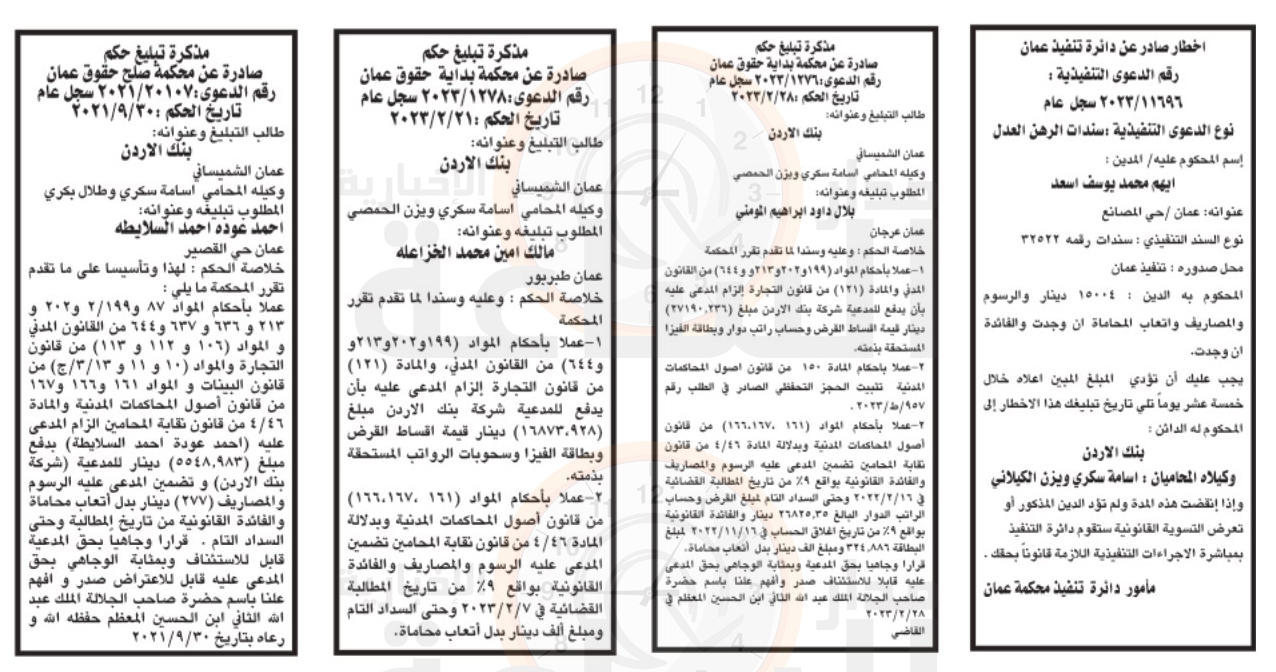 اخطار صادر عن دائرة تنفيذ عمان
رقم الدعوى التنفيذية :
٢٠٢٣/١١٦٩٦ سجل عام
نوع الدعوى التنفيذية :سندات الرهن العدل
إسم المحكوم عليه/ المدين :
ايهم محمد يوسف اسعد
عنوانه: عمان /حي المصانع
نوع السند التنفيذي : سندات رقمه ٣٢٥٢٢
محل صدوره : تنفيذ عمان
المحكوم به الدين : ١٥٠٠٤ دينار والرسوم
والمصاريف واتعاب المحاماة ان وجدت والفائدة
ان وجدت.
يجب عليك أن تؤدي المبلغ المبين اعلاه خلال
خمسة عشر يوماً تلي تاريخ تبليغك هذا الاخطار إلى
المحكوم له الدائن :
بنك الاردن
وكيلاه المحاميان : اسامة سكري ويزن الكيلاني
وإذا إنقضت هذه المدة ولم تؤد الدين المذكور أو
تعرض التسوية القانونية ستقوم دائرة التنفيذ
بمباشرة الاجراءات التنفيذية اللازمة قانوناً بحقك .
مأمور دائرة تنفيذ محكمة عمان
مذكرة تبليغ حكم
صادرة عن محكمة بداية حقوق عمان
رقم الدعوى:٢٠٢٣/١٢٧٦ سجل عام
تاريخ الحكم :٢٠٢٣/٢/٢٨
طالب التبليغ وعنوانه:
بنك الاردن
عمان الشميساني
وكيله المحامي اسامة سكري ويزن الحمصي
المطلوب تبليغه وعنوانه:
بلال داود ابراهيم المومني
عمان عرجان
خلاصة الحكم : وعليه وسندا لما تقدم تقرر المحكمة
١-عملا بأحكام المواد (١٩٩و٢٠٢و٢١٣و و٦٤٤) من القانون
المدني والمادة (١٢١) من قانون التجارة إلزام المدعى عليه
بأن يدفع للمدعية شركة بنك الاردن مبلغ (٢٧١٩٠,٢٣٦)
دينار قيمة اقساط القرض وحساب راتب دوار وبطاقة الفيزا
المستحقة بذمته.
٢-عملا باحكام المادة ١٥٠ من قانون اصول المحاكمات
المدنية تثبيت الحجز التحفظي الصادر في الطلب رقم
٩٥٧/ط/٢٠٢٣ .
٢-عملا بأحكام المواد (١٦١ ،١٦٦،١٦٧) من قانون
أصول المحاكمات المدنية وبدلالة المادة ٤/٤٦ من قانون
نقابة المحامين تضمين المدعى عليه الرسوم والمصاريف
والفائدة القانونية بواقع ٩٪ من تاريخ المطالبة القضائية
في ٢٠٢٢/٢/١٦ وحتى السداد التام لمبلغ القرض وحساب
الراتب الدوار البالغ ٢٦٨٢٥,٣٥ دينار والفائدة القانونية
بواقع ٩٪ من تاريخ اغلاق الحساب في ٢٠٢٢/١١/١٦ لمبلغ
البطاقة ٣٢٤,٨٨٦ ومبلغ الف دينار بدل أتعاب محاماة.
قرارا وجاهيا بحق المدعية وبمثابة الوجاهي بحق المدعى
عليه قابلا للاستئناف صدر وأفهم علنا باسم حضرة
صاحب الجلالة الملك عبد الله الثاني ابن الحسين المعظم في
٢٠٢٣/٢/٢٨
القاضي
مذكرة تبليغ حكم
صادرة عن محكمة بداية حقوق عمان
رقم الدعوى:٢٠٢٣/١٢٧٨ سجل عام
تاريخ الحكم :٢٠٢٣/٢/٢١
طالب التبليغ وعنوانه:
بنك الاردن
عمان الشميساني
وكيله المحامي اسامة سكري ويزن الحمصي
المطلوب تبليغه وعنوانه:
مالك امين محمد الخزاعله
عمان طبربور
خلاصة الحكم : وعليه وسندا لما تقدم تقرر
المحكمة
١-عملا بأحكام المواد (١٩٩و٢٠٢و٢١٣و
و٦٤٤) من القانون المدني، والمادة (١٢١)
من قانون التجارة إلزام المدعى عليه بأن
يدفع للمدعية شركة بنك الاردن مبلغ
(١٦٨٧٣,٩٢٨) دينار قيمة اقساط القرض
وبطاقة الفيزا وسحوبات الرواتب المستحقة
بذمته.
٢-عملا بأحكام المواد (١٦١ ،١٦٦،١٦٧)
من قانون أصول المحاكمات المدنية وبدلالة
المادة ٤/٤٦ من قانون نقابة المحامين تضمين
المدعى عليه الرسوم والمصاريف والفائدة
القانونية بواقع ٩٪ من تاريخ المطالبة
القضائية في ٢٠٢٣/٢/٧ وحتى السداد التام
ومبلغ ألف دينار بدل أتعاب محاماة.
مذكرة تبليغ حكم
صادرة عن محكمة صلح حقوق عمان
رقم الدعوى:٢٠٢١/٢٠١٠٧ سجل عام
تاريخ الحكم :٢٠٢١/٩/٣٠
طالب التبليغ وعنوانه:
بنك الاردن
عمان الشميساني
وكيله المحامي اسامة سكري وطلال بكري
المطلوب تبليغه وعنوانه:
احمد عوده احمد السلايطه
عمان حي القصير
خلاصة الحكم : لهذا وتأسيسا على ما تقدم
تقرر المحكمة ما يلي :
عملا بأحكام المواد ٨٧ و٢/١٩٩ و٢٠٢ و
٢١٣ و ٦٣٦ و ٦٣٧ و٦٤٤ من القانون المدني
و المواد (١٠٦ و ١١٢ و ١١٣) من قانون
التجارة والمواد (١٠ و ١١ و ٣/١٣/ج) من
قانون البينات و المواد ١٦١ و١٦٦ و١٦٧
من قانون أصول المحاكمات المدنية والمادة
٤/٤٦ من قانون نقابة المحامين الزام المدعى
عليه (احمد عودة احمد السلايطة) بدفع
مبلغ (٥٥٤٨,٩٨٣) دينار للمدعية (شركة
بنك الاردن) و تضمين المدعى عليه الرسوم
والمصاريف (٢٧٧) دينار بدل أتعاب محاماة
والفائدة القانونية من تاريخ المطالبة وحتى
السداد التام . قرارا وجاهياً بحق المدعية
قابل للاستئناف وبمثابة الوجاهي بحق
المدعى عليه قابل للاعتراض صدر و افهم
علنا باسم حضرة صاحب الجلالة الملك عبد
الله الثاني ابن الحسين المعظم حفظه الله و
رعاه بتاريخ ٢٠٢١/٩/٣٠